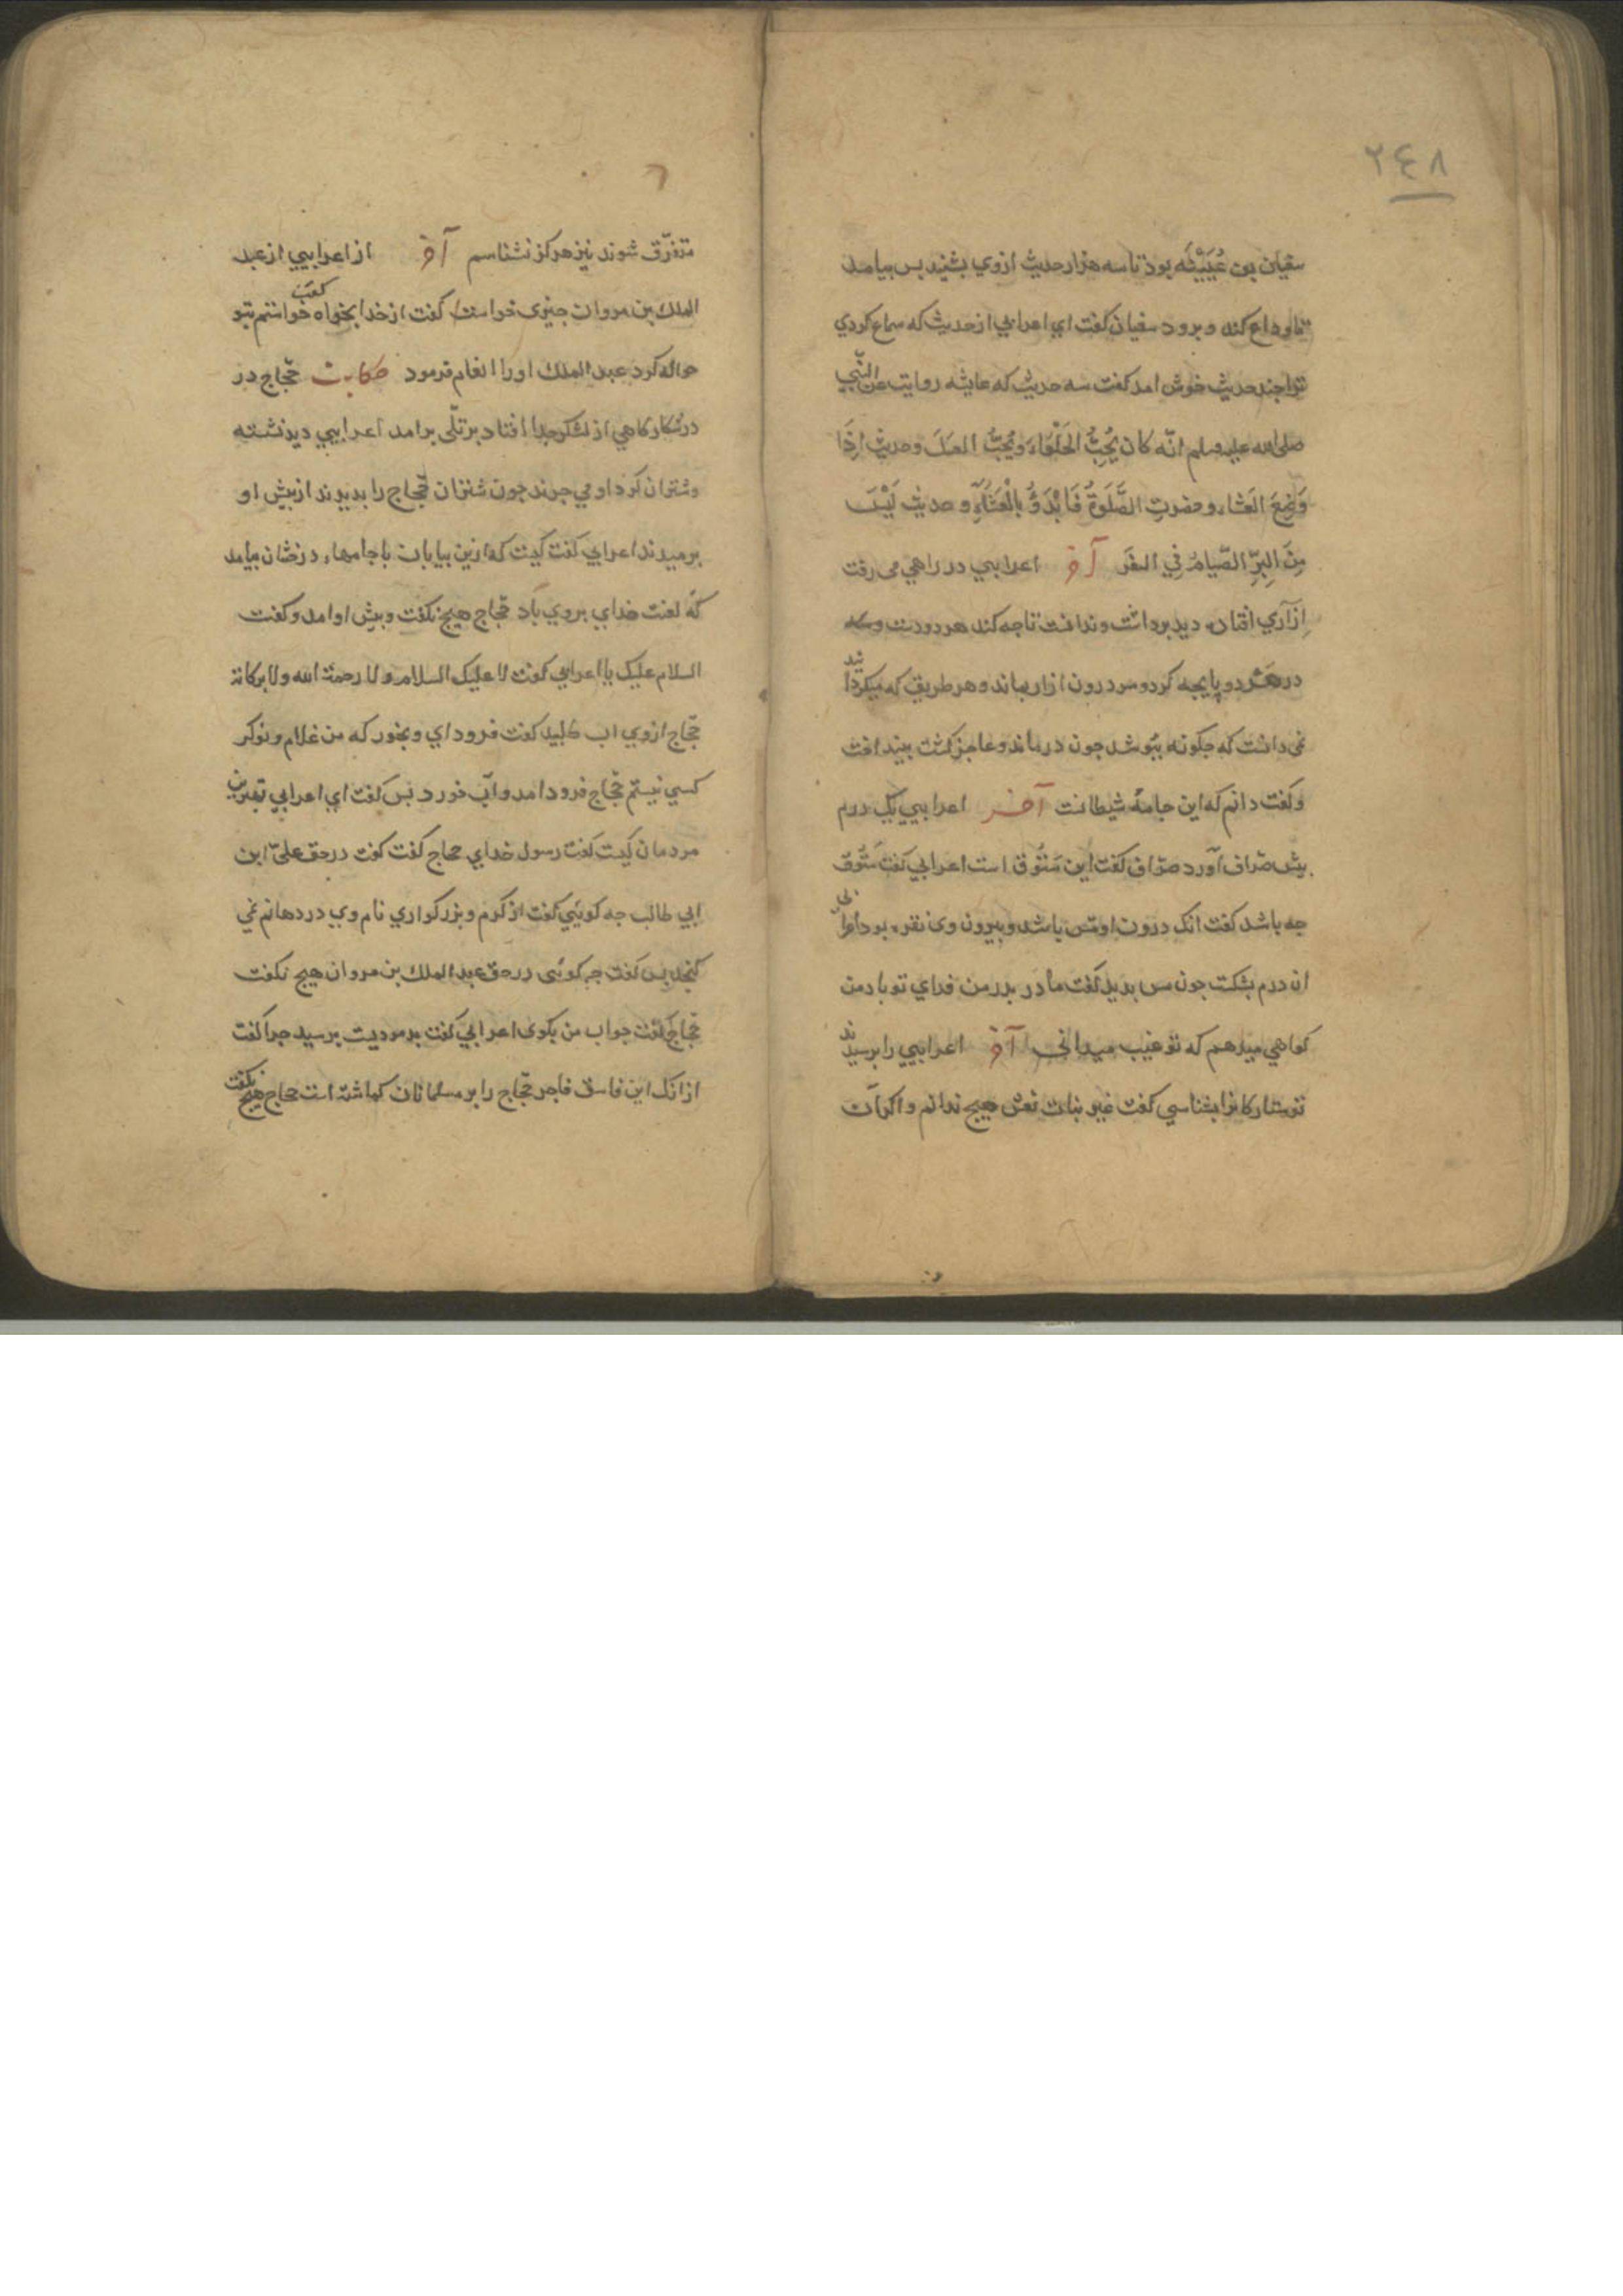 ٢٤٨
سفیان بن عُیَیْنَه بود تا سه هزار حدیث ازوي بشنید بس بیامد
تا وداع کند و برود سفیان کفت اي اعرابي از حدیث که سماع کردي
ترا جند حدیث خوش امد کفت سه حدیث که عایشه روایت عن النّبي
صلی الله علیه وسلم انّه کان یُحِبُّ الحَلْوَاءَ وَیُحِبُّ العسَلَ وحدیث اِذَا
وَضِعَ العَشَاء وحضرتِ الصَّلَوةُ فَابْدَؤُ بِالْعَشَآءِ و حدیث لَیْسَ
مِنَ البِرِّ الصّیَامُ فِي السفَر آخر اعرابیي در راهي می رفت
اِزاري افتاده دید برداشت وندانست تا جه کند هر دو دست
در هر دو پایجه کرد و سر درون ازار بماند وهر طریق که میکرد
نمی دانست که جکونه ببوشد جون درماند و عاجز کشت بینداخت
وکفت دانم که این جامهٔ شیطانست آخر اعرابیي یک درم
بیش صرّاف آورد صرّاف کفت این سَتُّوق است اعرابي کفت سَتُّوق
جه باشد کفت انک درون او مس باشد وبیرون وی نقره بود
ان درم بشکست جون مس بدید کفت مادر بدر من فداي تو باد من
کواهي میدهم که تو غیب میداني آخر اعرابیي را برسیدند
تو ستارکانرا بشناسي کفت غیر بنات نعش هیج ندانم و اکر آن
متفرّق شوند نیز هرکز نشناسم آخر از اعرابیي از عبد
الملك بن مروان جیزی خواست کفت از خدا بخواه کفت خواستم بتو
حواله کرد عبد الملك او را انعام فرمود حکایت حجّاج در
در شکارکاهي از لشکر جدا افتاد بر تلّی برامد اعرابیي دید نشسته
وشتران کرد او می جرند جون شتران حجّاج را بدیدند از بیش او
برمیدند اعرابي کفت کیست که ازین بیابان با جامهاء درخشان بیامد
که لعنت خداي بروي باد حجاج هیج نکفت و بیش او امد و کفت
السلام علیك یا اعرابي کفت لا علیك السلام ولا رحمة الله ولا برکاته
حجّاج ازوي اب طلبید کفت فرود اي و بخور که من غلام و نوکر
کسي نیستم حجّاج فرود امد و آب خورد بس کفت اي اعرابي بهترین
مردمان کیست کفت رسول خداي حجاج کفت کفت در حق عليّ ابن
ابي طالب جه کویي کفت از کرم و بزرکواري نام وي در دهانم نمي
کنجد بس کفت جه کوئی در حق عبد الملك بن مروان هیج نکفت
حجّاج کفت جواب من بکوی اعرابي کفت بد مردیست برسید جرا کفت
از انک این فاسق فاجر حجّاج را بر مسلمانان کماشته است حجاج هیج نکفت